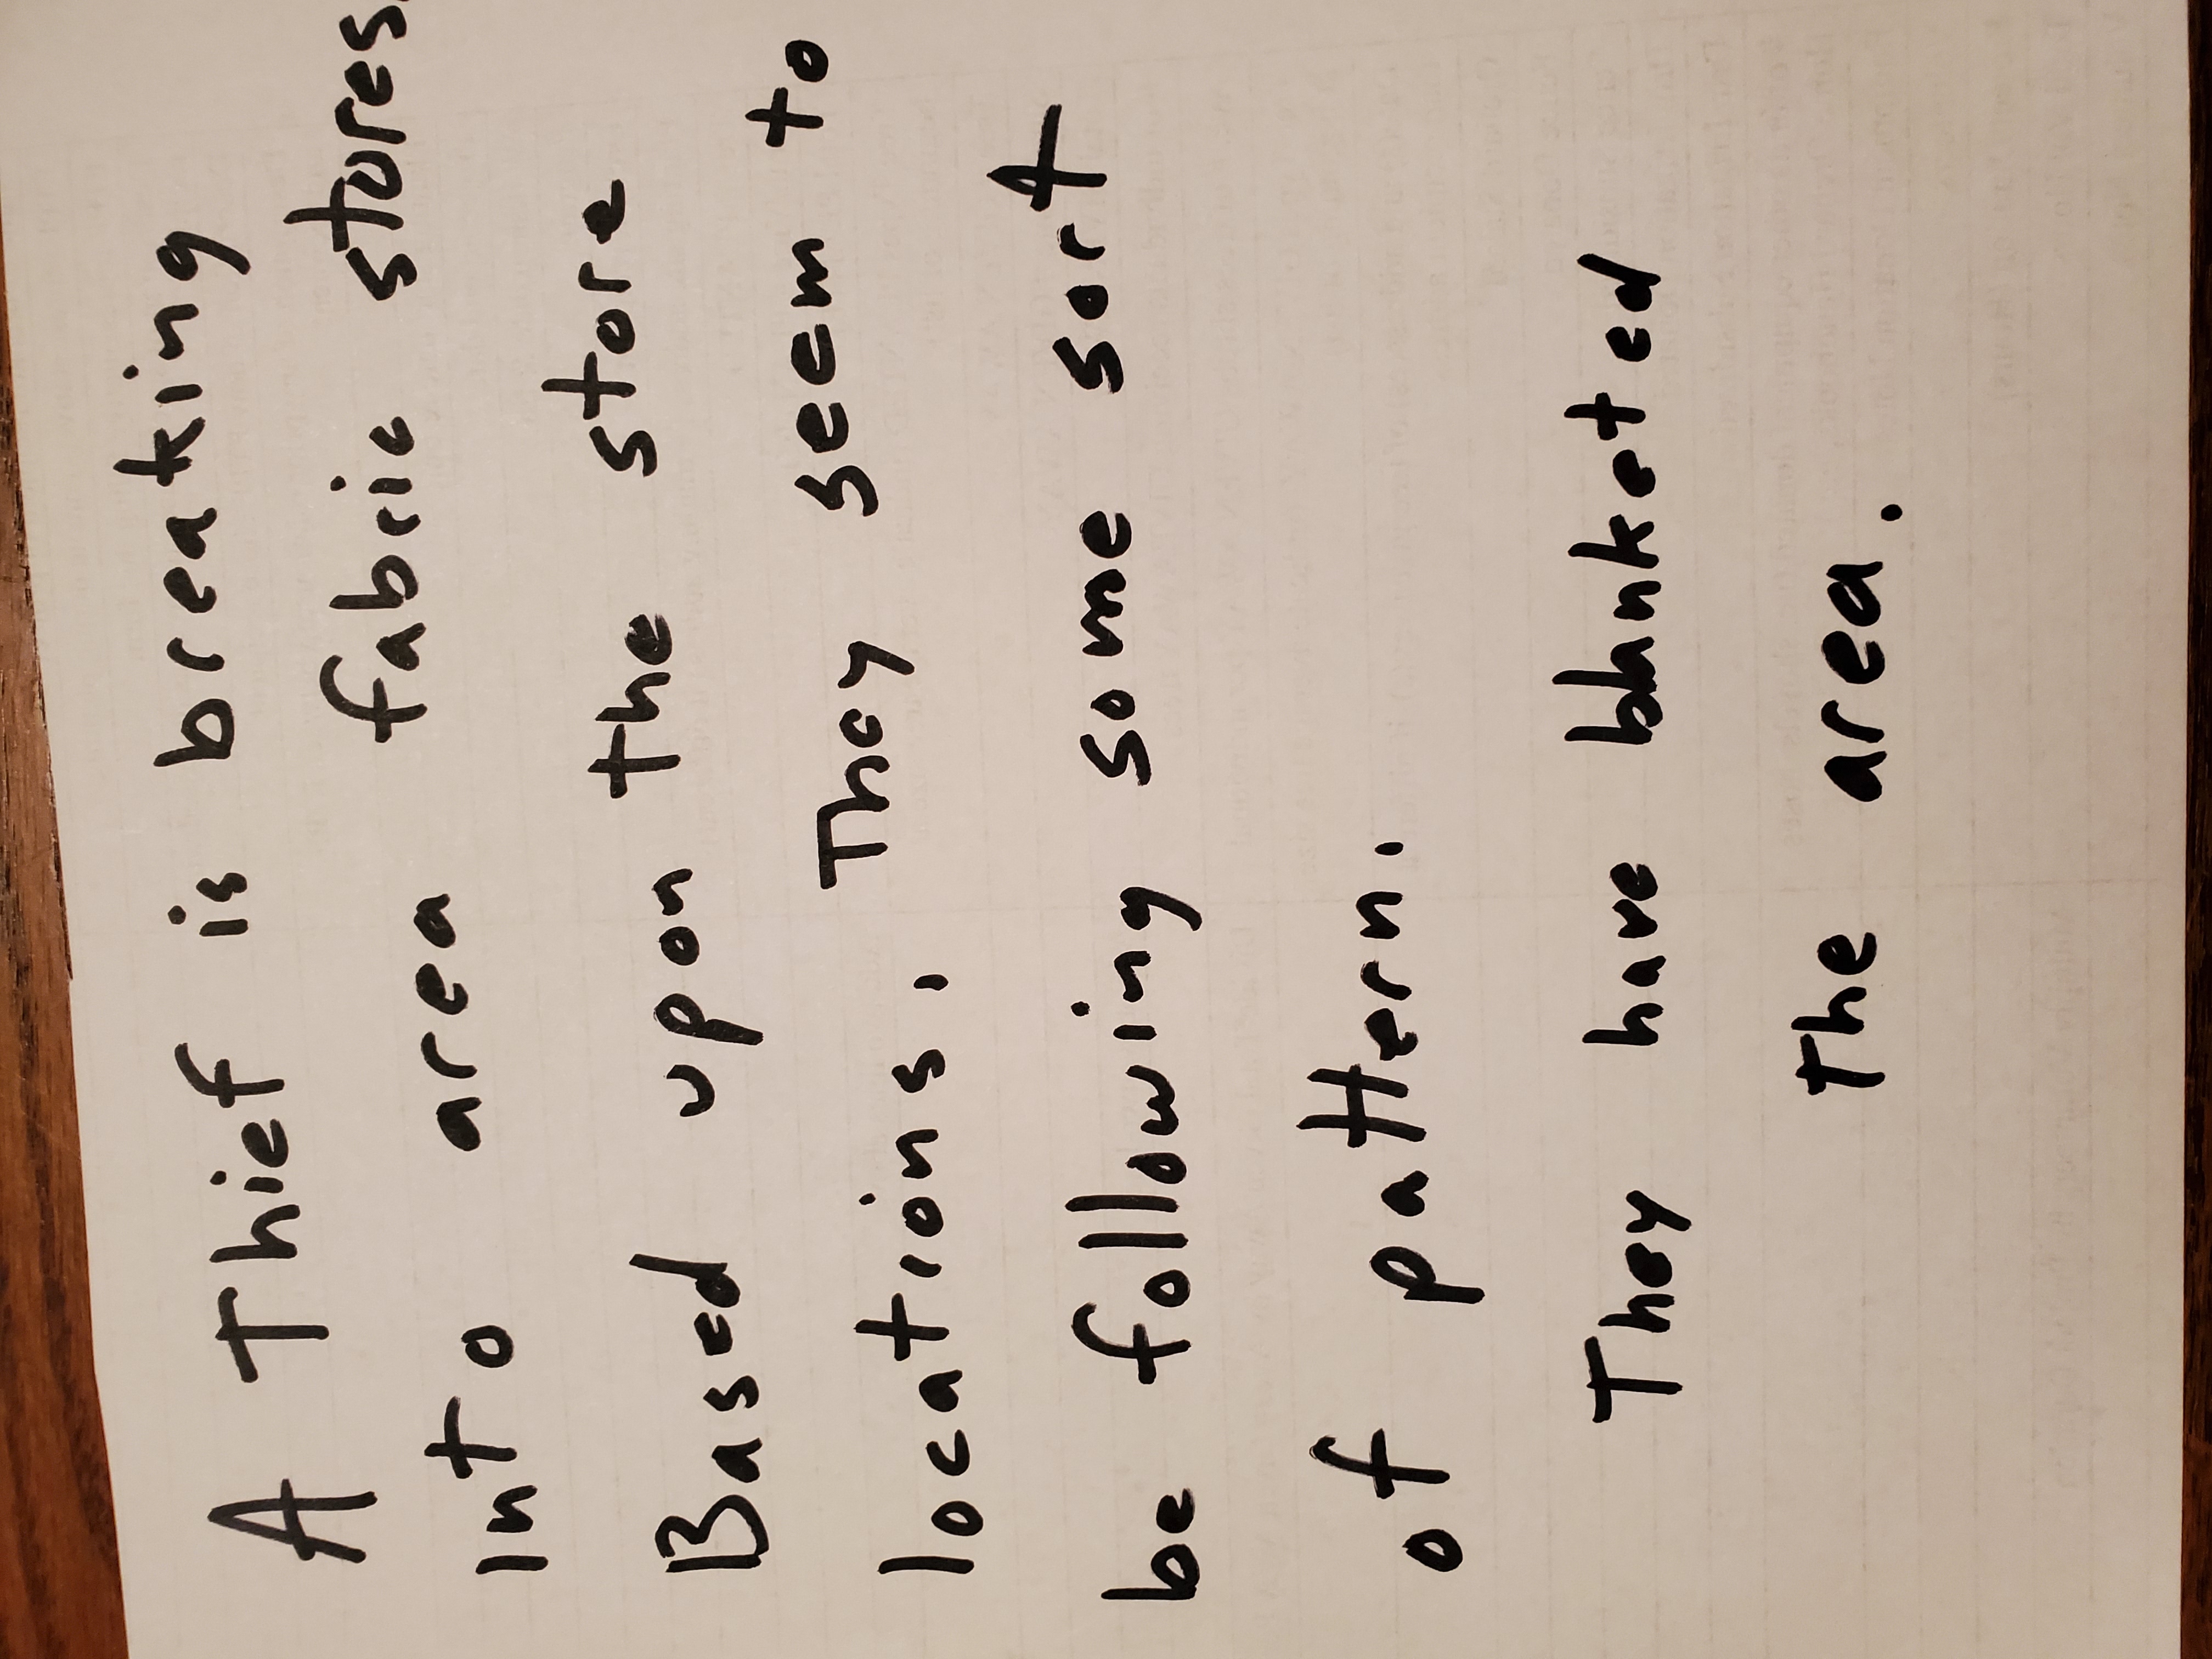 A Thief is breaking
into area fabric stores.
Based upon the store
locations, They seem to
be following some sort
of pattern.
They have blanketed
the area.